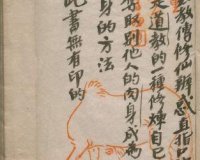 教僧修仙辦惑直指
是道教的一種修煉自己
取別人的肉身成為
身的方法
此書無有印的